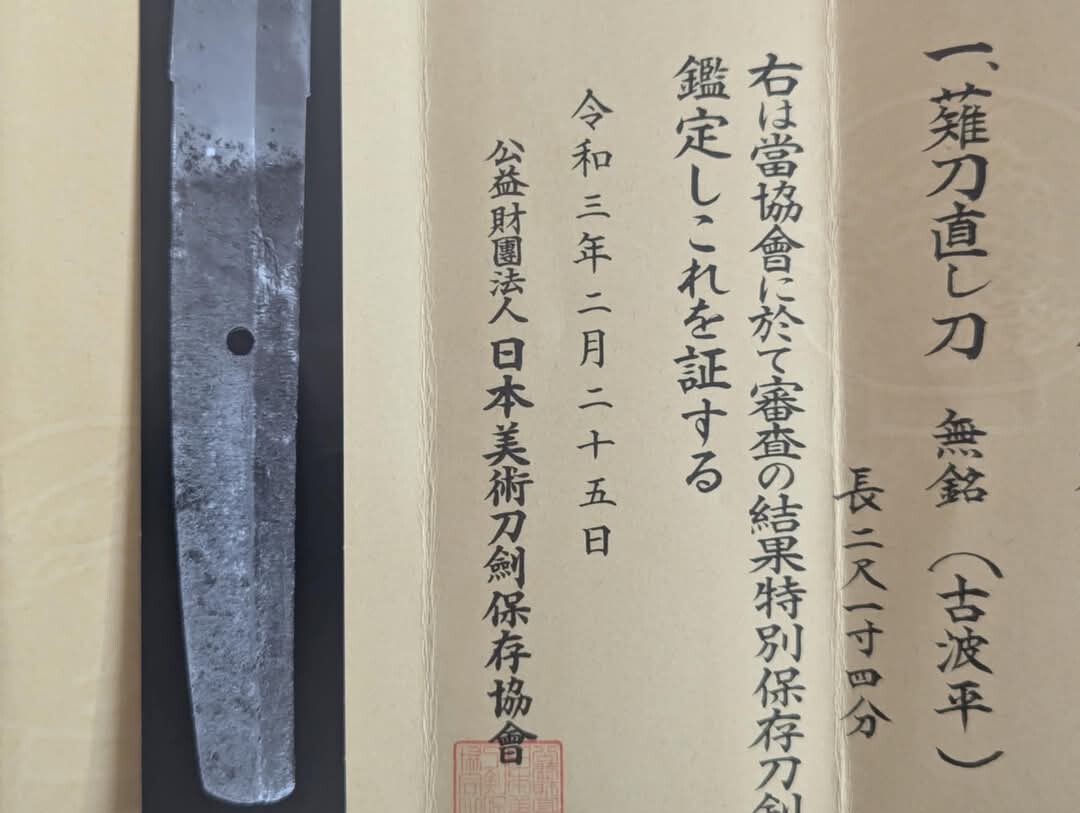 一、薙刀直し刀　無銘（古波平）
長二尺一寸四分
右は當協會に於て審査の結果特別保存刀剣
鑑定しこれを証する
令和三年二月二十五日
公益財團法人日本美術刀劍保存協會